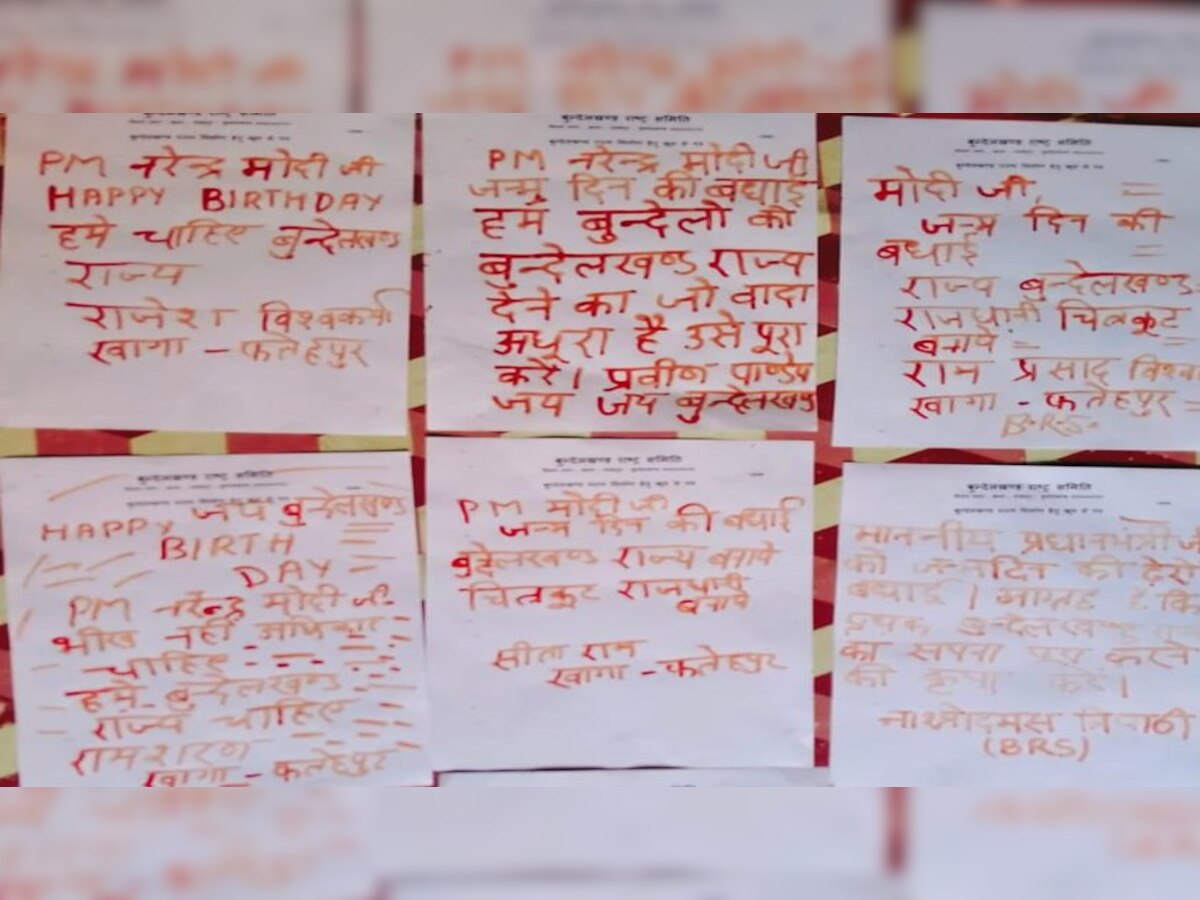 बुन्देलखण्ड राष्ट्र समिति
PM नरेन्द्र मोदी जी
HAPPY BIRTHDAY
हमे चाहिए बुन्देलखण्ड
राज्य
राजेश विश्वकर्मा
खागा - फतेहपुर
बुन्देलखण्ड राष्ट्र समिति
PM नरेन्द्र मोदी जी
जन्म दिन की बधाई
हम बुन्देलों को
बुन्देलखण्ड राज्य
देने का जो वादा
अधूरा है उसे पूरा
करें। प्रवीण पाण्डेय
जय जय बुन्देलखण्ड
बुन्देलखण्ड राष्ट्र समिति
मोदी जी,
जन्म दिन की
बधाई
राज्य बुन्देलखण्ड
राजधानी चित्रकूट
बनाये
राम प्रसाद विश्व
खागा - फतेहपुर
B.R.S.
बुन्देलखण्ड राष्ट्र समिति
जय बुन्देलखण्ड
HAPPY
BIRTH
DAY
PM नरेन्द्र मोदी जी
भीख नहीं अधिकार
चाहिए
हमे बुन्देलखण्ड
राज्य चाहिए
रामशरण
खागा - फतेहपुर
बुन्देलखण्ड राष्ट्र समिति
PM मोदी जी
जन्म दिन की बधाई
बुन्देलखण्ड राज्य बनाये
चित्रकूट राजधानी
बनाये
सीता राम
खागा - फतेहपुर
बुन्देलखण्ड राष्ट्र समिति
माननीय प्रधानमंत्री जी
को जन्मदिन की ढेरों
बधाई।
पृथक बुन्देलखण्ड
का सपना पूरा करने
की कृपा करें।
(BRS)